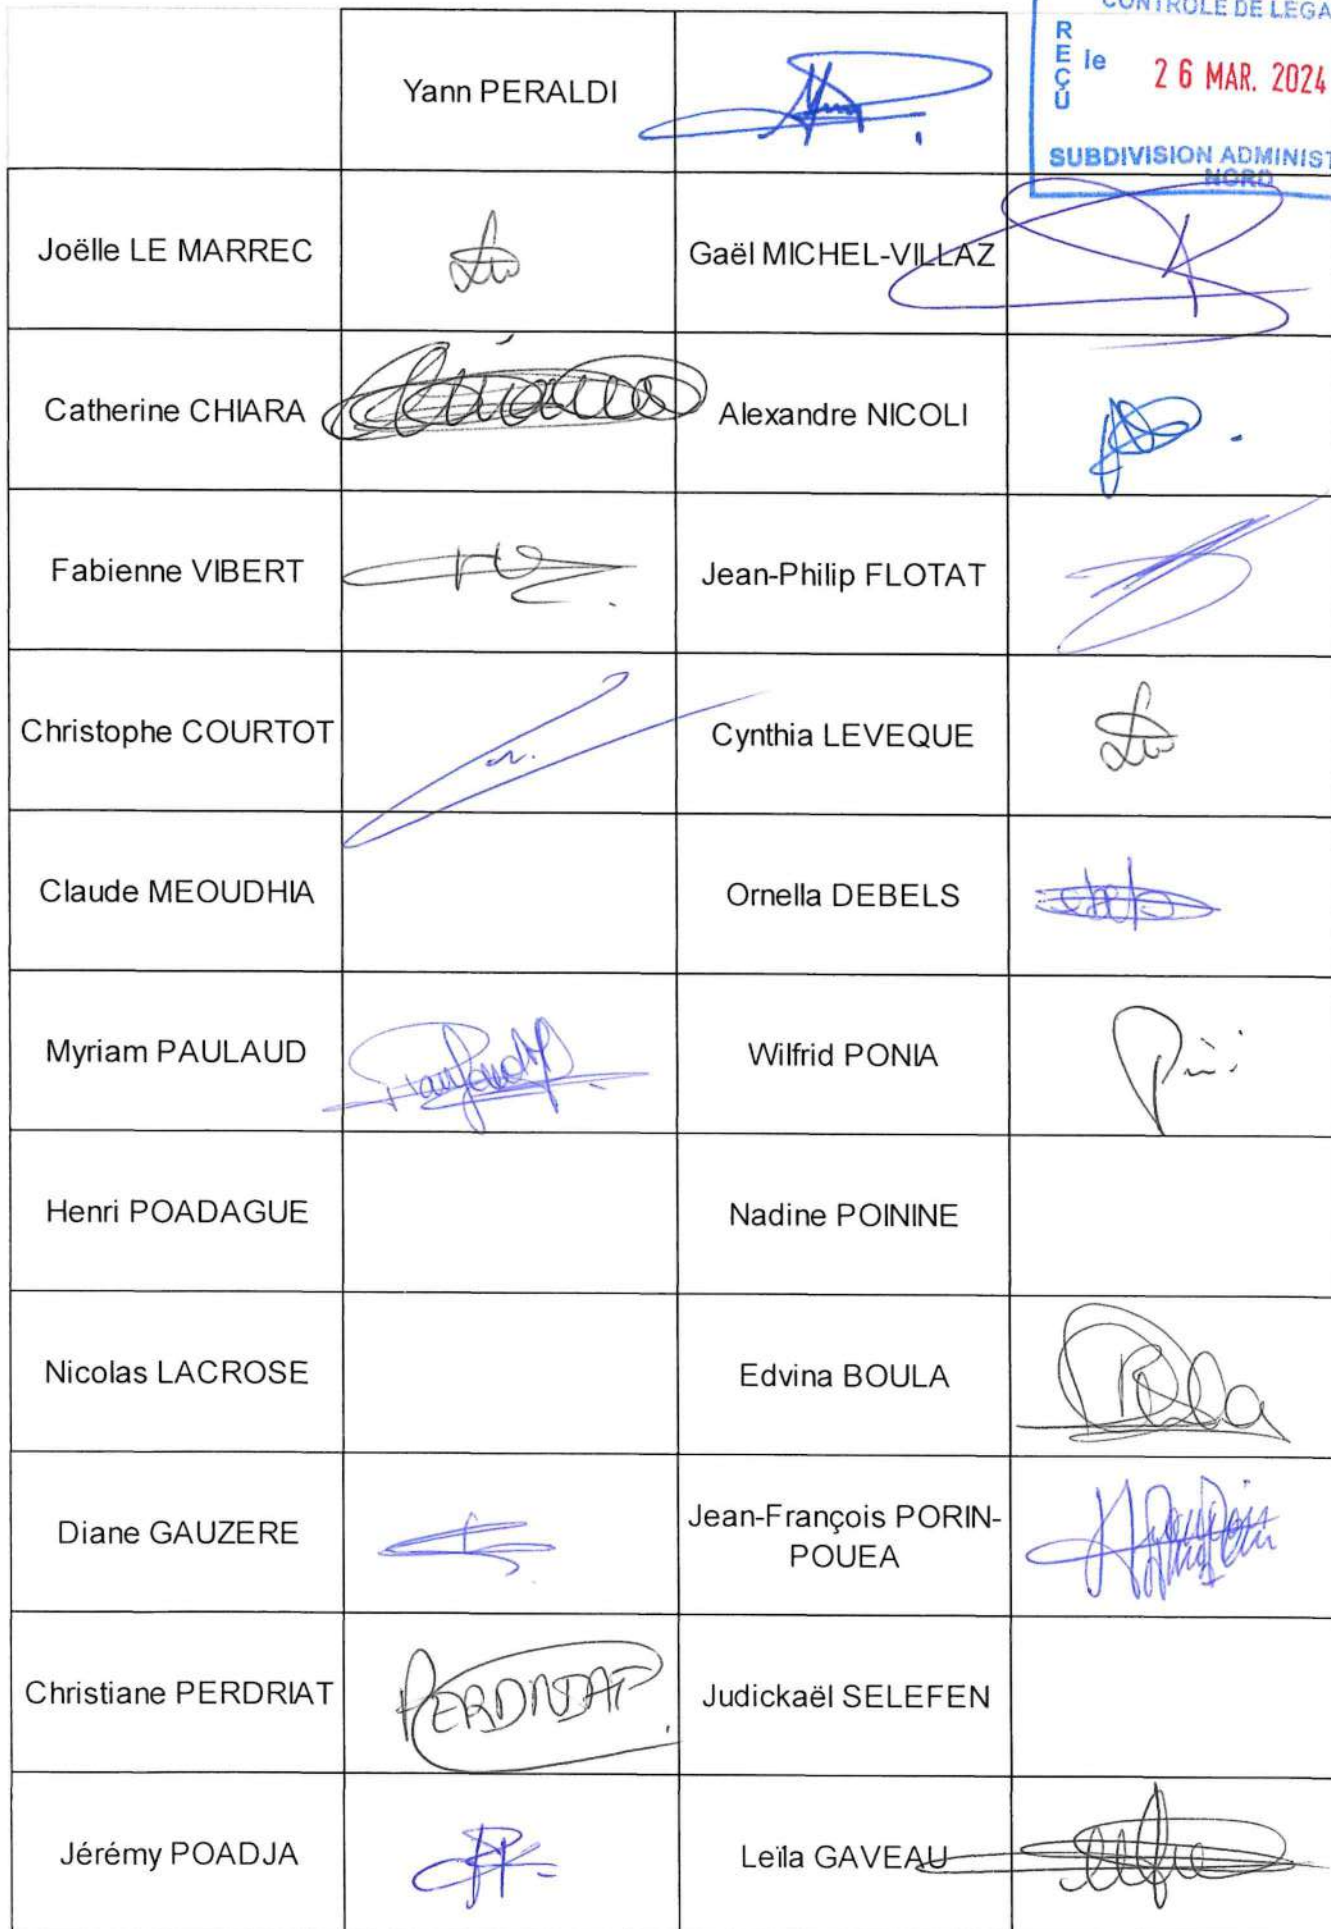 CONTROLE DE LEGA
REÇU le 26 MAR. 2024
SUBDIVISION ADMINIST
NORD
Yann PERALDI
Joëlle LE MARREC
Gaël MICHEL-VILLAZ
Catherine CHIARA
Alexandre NICOLI
Fabienne VIBERT
Jean-Philip FLOTAT
Christophe COURTOT
Cynthia LEVEQUE
Claude MEOUDHIA
Ornella DEBELS
Myriam PAULAUD
Wilfrid PONIA
Henri POADAGUE
Nadine POININE
Nicolas LACROSE
Edvina BOULA
Diane GAUZERE
Jean-François PORIN-
POUEA
Christiane PERDRIAT
PERDRIAT
Judickaël SELEFEN
Jérémy POADJA
Leïla GAVEAU